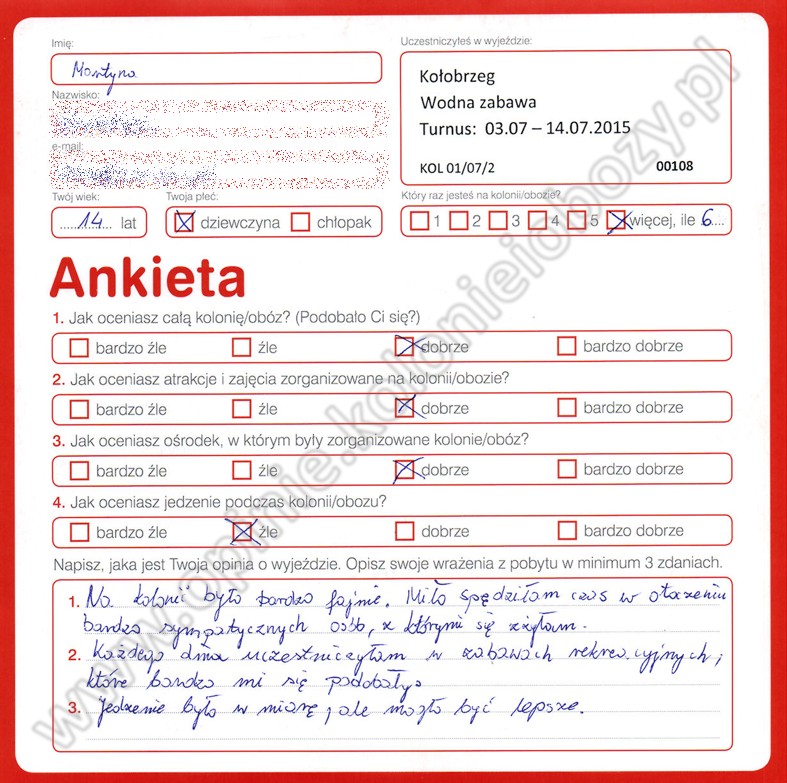 Imię:
Martyna
Nazwisko:
e-mail:
Twój wiek:
14 lat
Twoja płeć:
dziewczyna chłopak
Uczestniczyłeś w wyjeździe:
Kołobrzeg
Wodna zabawa
Turnus: 03.07 – 14.07.2015
KOL 01/07/2 00108
Który raz jesteś na kolonii/obozie?
1 2 3 4 5 więcej, ile 6
Ankieta
1. Jak oceniasz całą kolonię/obóz? (Podobało Ci się?)
bardzo źle źle dobrze bardzo dobrze
2. Jak oceniasz atrakcje i zajęcia zorganizowane na kolonii/obozie?
bardzo źle źle dobrze bardzo dobrze
3. Jak oceniasz ośrodek, w którym były zorganizowane kolonie/obóz?
bardzo źle źle dobrze bardzo dobrze
4. Jak oceniasz jedzenie podczas kolonii/obozu?
bardzo źle źle dobrze bardzo dobrze
Napisz, jaka jest Twoja opinia o wyjeździe. Opisz swoje wrażenia z pobytu w minimum 3 zdaniach.
1. Na kolonii było bardzo fajnie. Miło spędziłam czas w otoczeniu
bardzo sympatycznych osób, z którymi się zżyłam.
2. Każdego dnia uczestniczyłam w zabawach rekreacyjnych,
które bardzo mi się podobały.
3. Jedzenie było w miarę, ale mogło być lepsze.
www.opinie.kolonieiobozy.pl